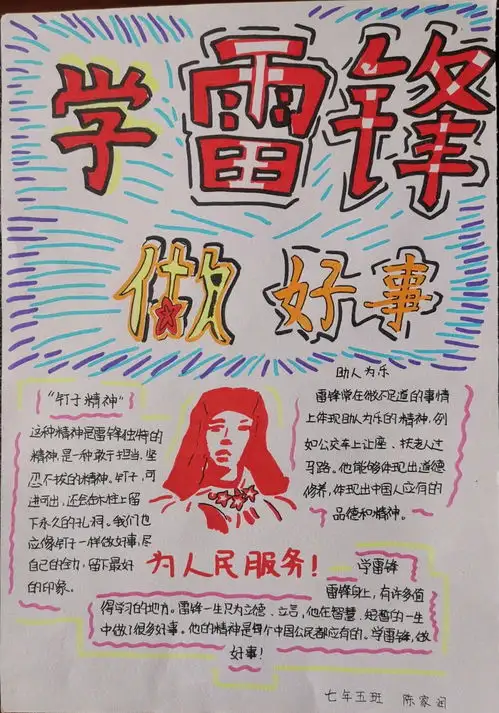 学雷锋
做好事
"钉子精神"
这种精神是雷锋独特的
精神,是一种敢于担当,坚
忍不拔的精神。钉子,可
进可出,还会在木柱上留
下永久的孔洞。我们也
应像钉子一样做好事,尽
自己的全力,留下最好
的印象。
助人为乐
雷锋常在微不足道的事情
上体现助人为乐的精神,例
如公交车上让座、扶老人过
马路。他能够体现出道德
修养,体现出中国人应有的
品德和精神。
为人民服务!
学雷锋
雷锋身上,有许多值
得学习的地方。雷锋一生只为立德、立言,他在智慧、短暂的一生
中做了很多好事。他的精神是每个中国公民都应有的。学雷锋,做
好事!
七年五班 陈家润